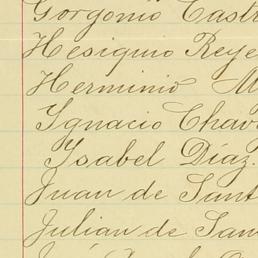 Gorgonio Castr
Hesiquio Reye
Herminio M
Ignacio Chav
Ysabel Díaz.
Juan de Sant
Julian de San
José